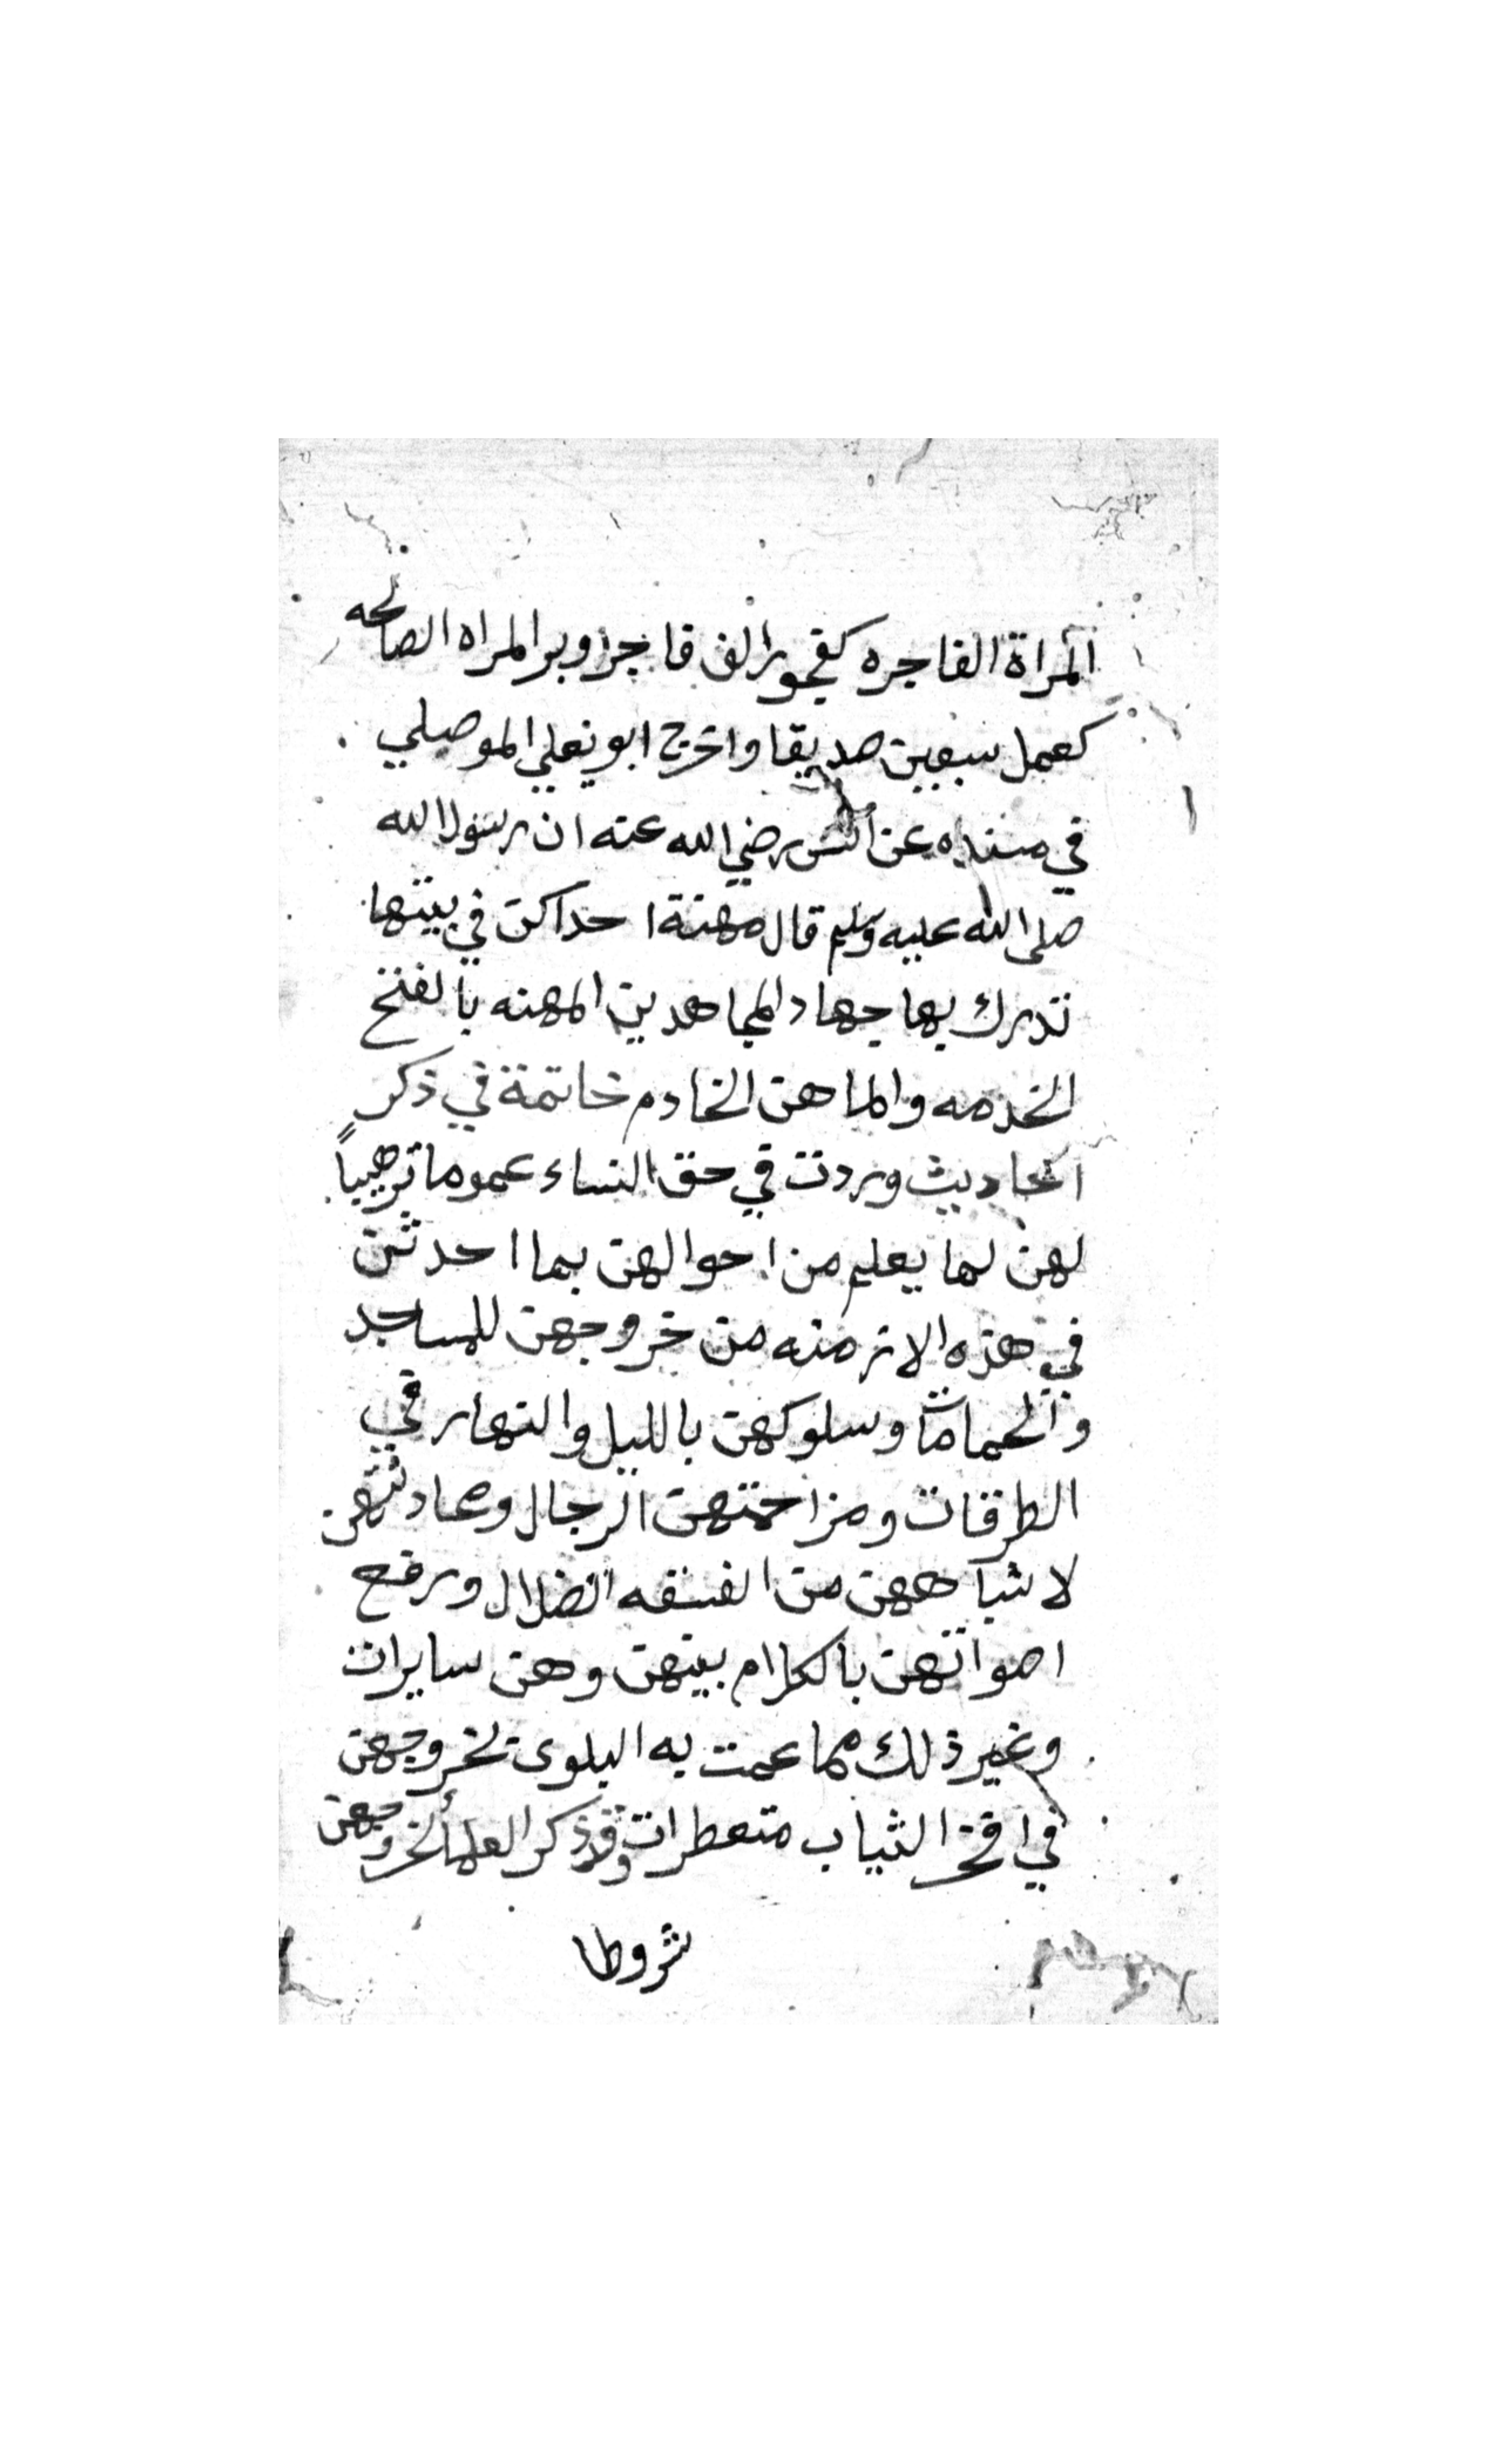 المراة الفاجره كفجور الف فاجر وبر المراه الصالحه
كعمل سبعين صديقا واخرج ابو يعلي الموصلي
في مسنده عن انس رضي الله عنه ان رسول الله
صلى الله عليه وسلم قال مهنة احداكن في بيتها
تدرك بها جهاد المجاهدين المهنه بالفتح
الخدمه والماهن الخادم خاتمة في ذكر
احاديث وردت في حق النساء عموما ترهيباً
لهن لما يعلم من احوالهن بما احدثن
في هذه الازمنه من خروجهن للمساجد
والحمامات وسلوكهن بالليل والنهار في
الطرقات ومزاحمتهن الرجال ومحادثتهن
لاشباههن من الفسقه الضلال ورفع
اصواتهن بالكلام بينهن وهن سايرات
وغير ذلك مما عمت به البلوى لخروجهن
في افخر الثياب متعطرات وقد ذكر العلمأ لخروجهن
شروطا